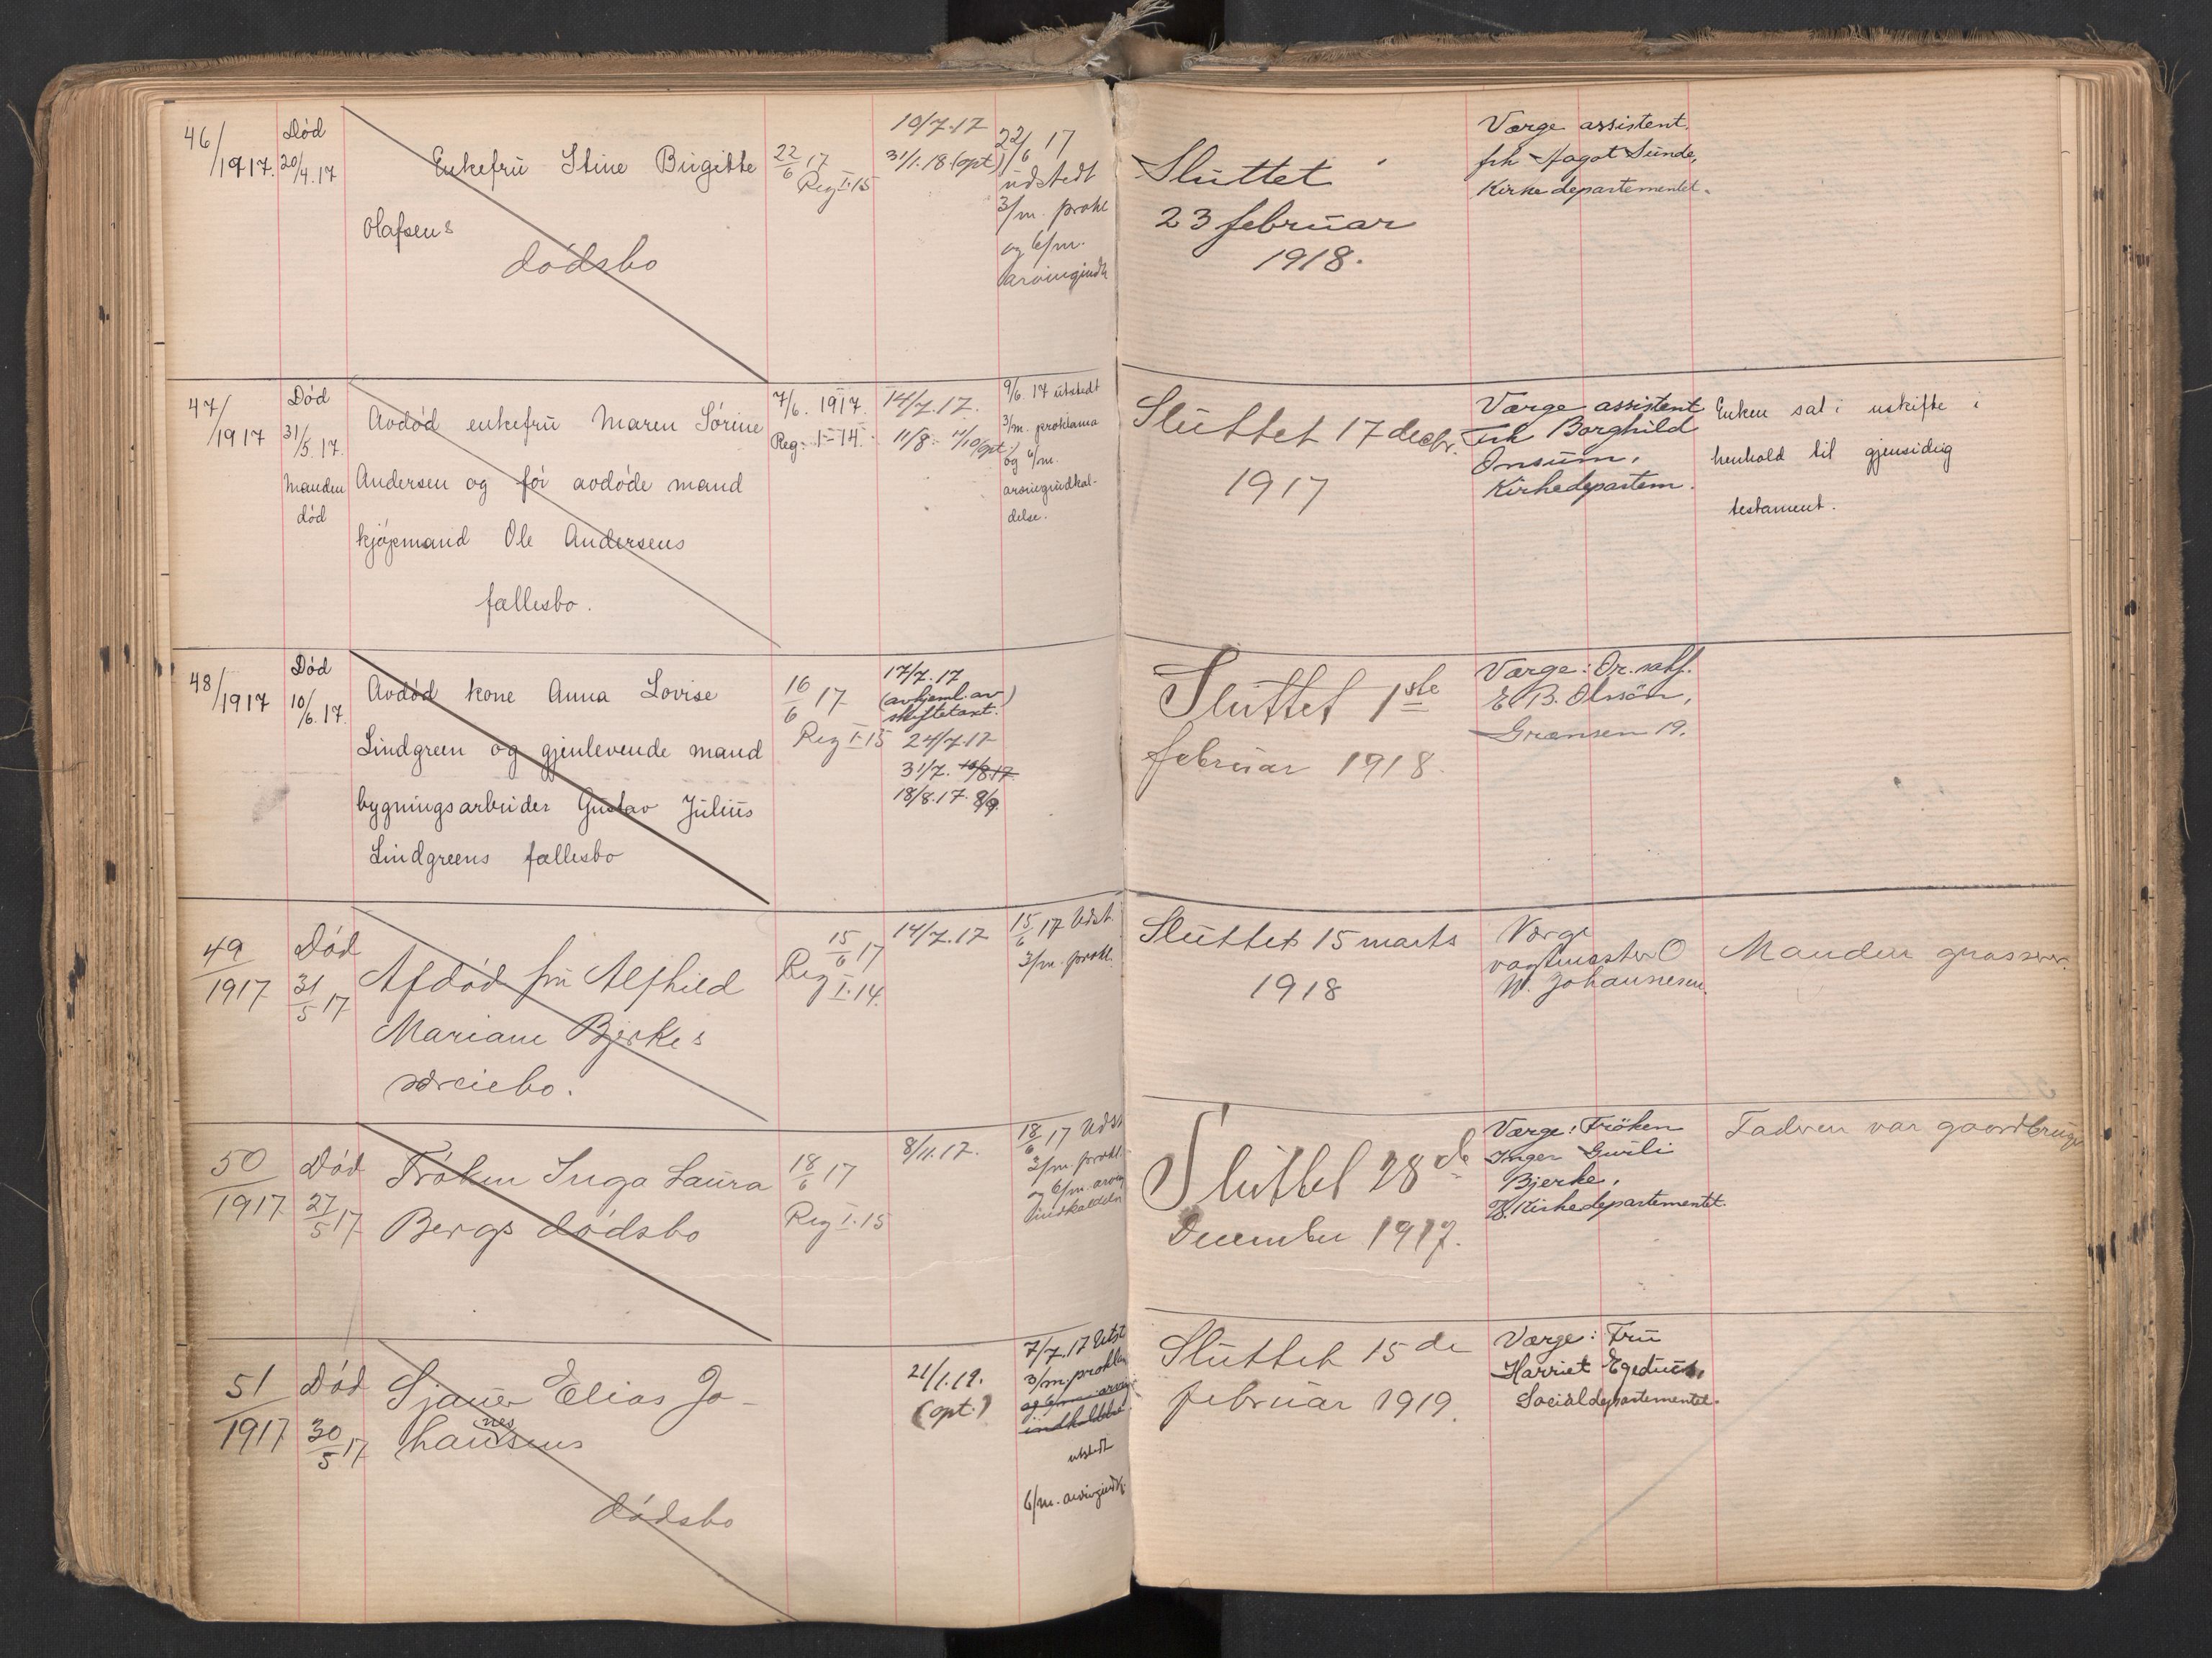 46/1917.
Død
20/4.17
Enkefru Stine Birgitte
Olafsens
dødsbo
22/6 17
Reg I.15
10/7.17
31/1.18 (opt)
22/6 17
udstedt
3/m. prokl
og 6/m.
arvingindk
Sluttet
23 februar
1918.
Værge assistent.
frk Aagot Sunde,
Kirkedepartementet.
47/1917
Død
31/5.17.
Manden
død
Avdød enkefru Maren Sørine
Andersen og før avdøde mand
kjøpmand Ole Andersens
fællesbo.
7/6. 1917.
Reg: I-14.
14/7.17.
11/8. 11/10 (opt)
9/6. 17 utstedt
3/m. proklama
og 6/m.
arvingindkal-
delse.
Sluttet 17 decbr.
1917
Værge assistent
Frk Borghild
Onsum,
Kirkedepartem.
Enken sat i uskifte i
henhold til gjensidig
testament.
48/1917
Død
10/6.17.
Avdød kone Anna Lovise
Lindgreen og gjenlevende mand
bygningsarbeider Gustav Julius
Lindgreens fællesbo
16/6 17
Reg I.15
17/7.17
(avhjeml. av)
skiftetaxt.
24/7.17
31/7. 10/8.17.
18/8.17. 8/9.
Sluttet 1ste
februar 1918.
Værge: Or. sakf.
E. B. Olssøn,
Grænsen 19.
49/1917
Død
31/5 17
Afdød fru Alfhild
Mariane Bjerkes
særeiebo.
15/6 17
Reg I.14.
14/7.17
15/6 17 Udst.
3/m. prokl.
Sluttet 15 marts
1918
Værge
vagtmester O
W. Johannesen.
Manden
50/1917
Død
27/5 17
Frøken Inga Laura
Bergs dødsbo
18/6 17
Reg I.15
8/11.17.
18/6 17 Udst
3/m. prokl.
og 6/m. arving
indkaldelse
Sluttet 28de
December 1917.
Værge: Frøken
Inger Guvli
Bjerke,
Kirkedepartementet.
Fadren var gaardbruger
51/1917
Død
30/5 17
Sjauer Elias Jo-
hansens
nes
dødsbo
21/1.19.
(opt.)
7/7.17 Utst
3/m. proklam
og 6/m. arving
indkaldelse
utstedt
6/m. arvingindk.
Sluttet 15 de
februar 1919.
Værge: Fru
Harriet Egedius,
Socialdepartementet.